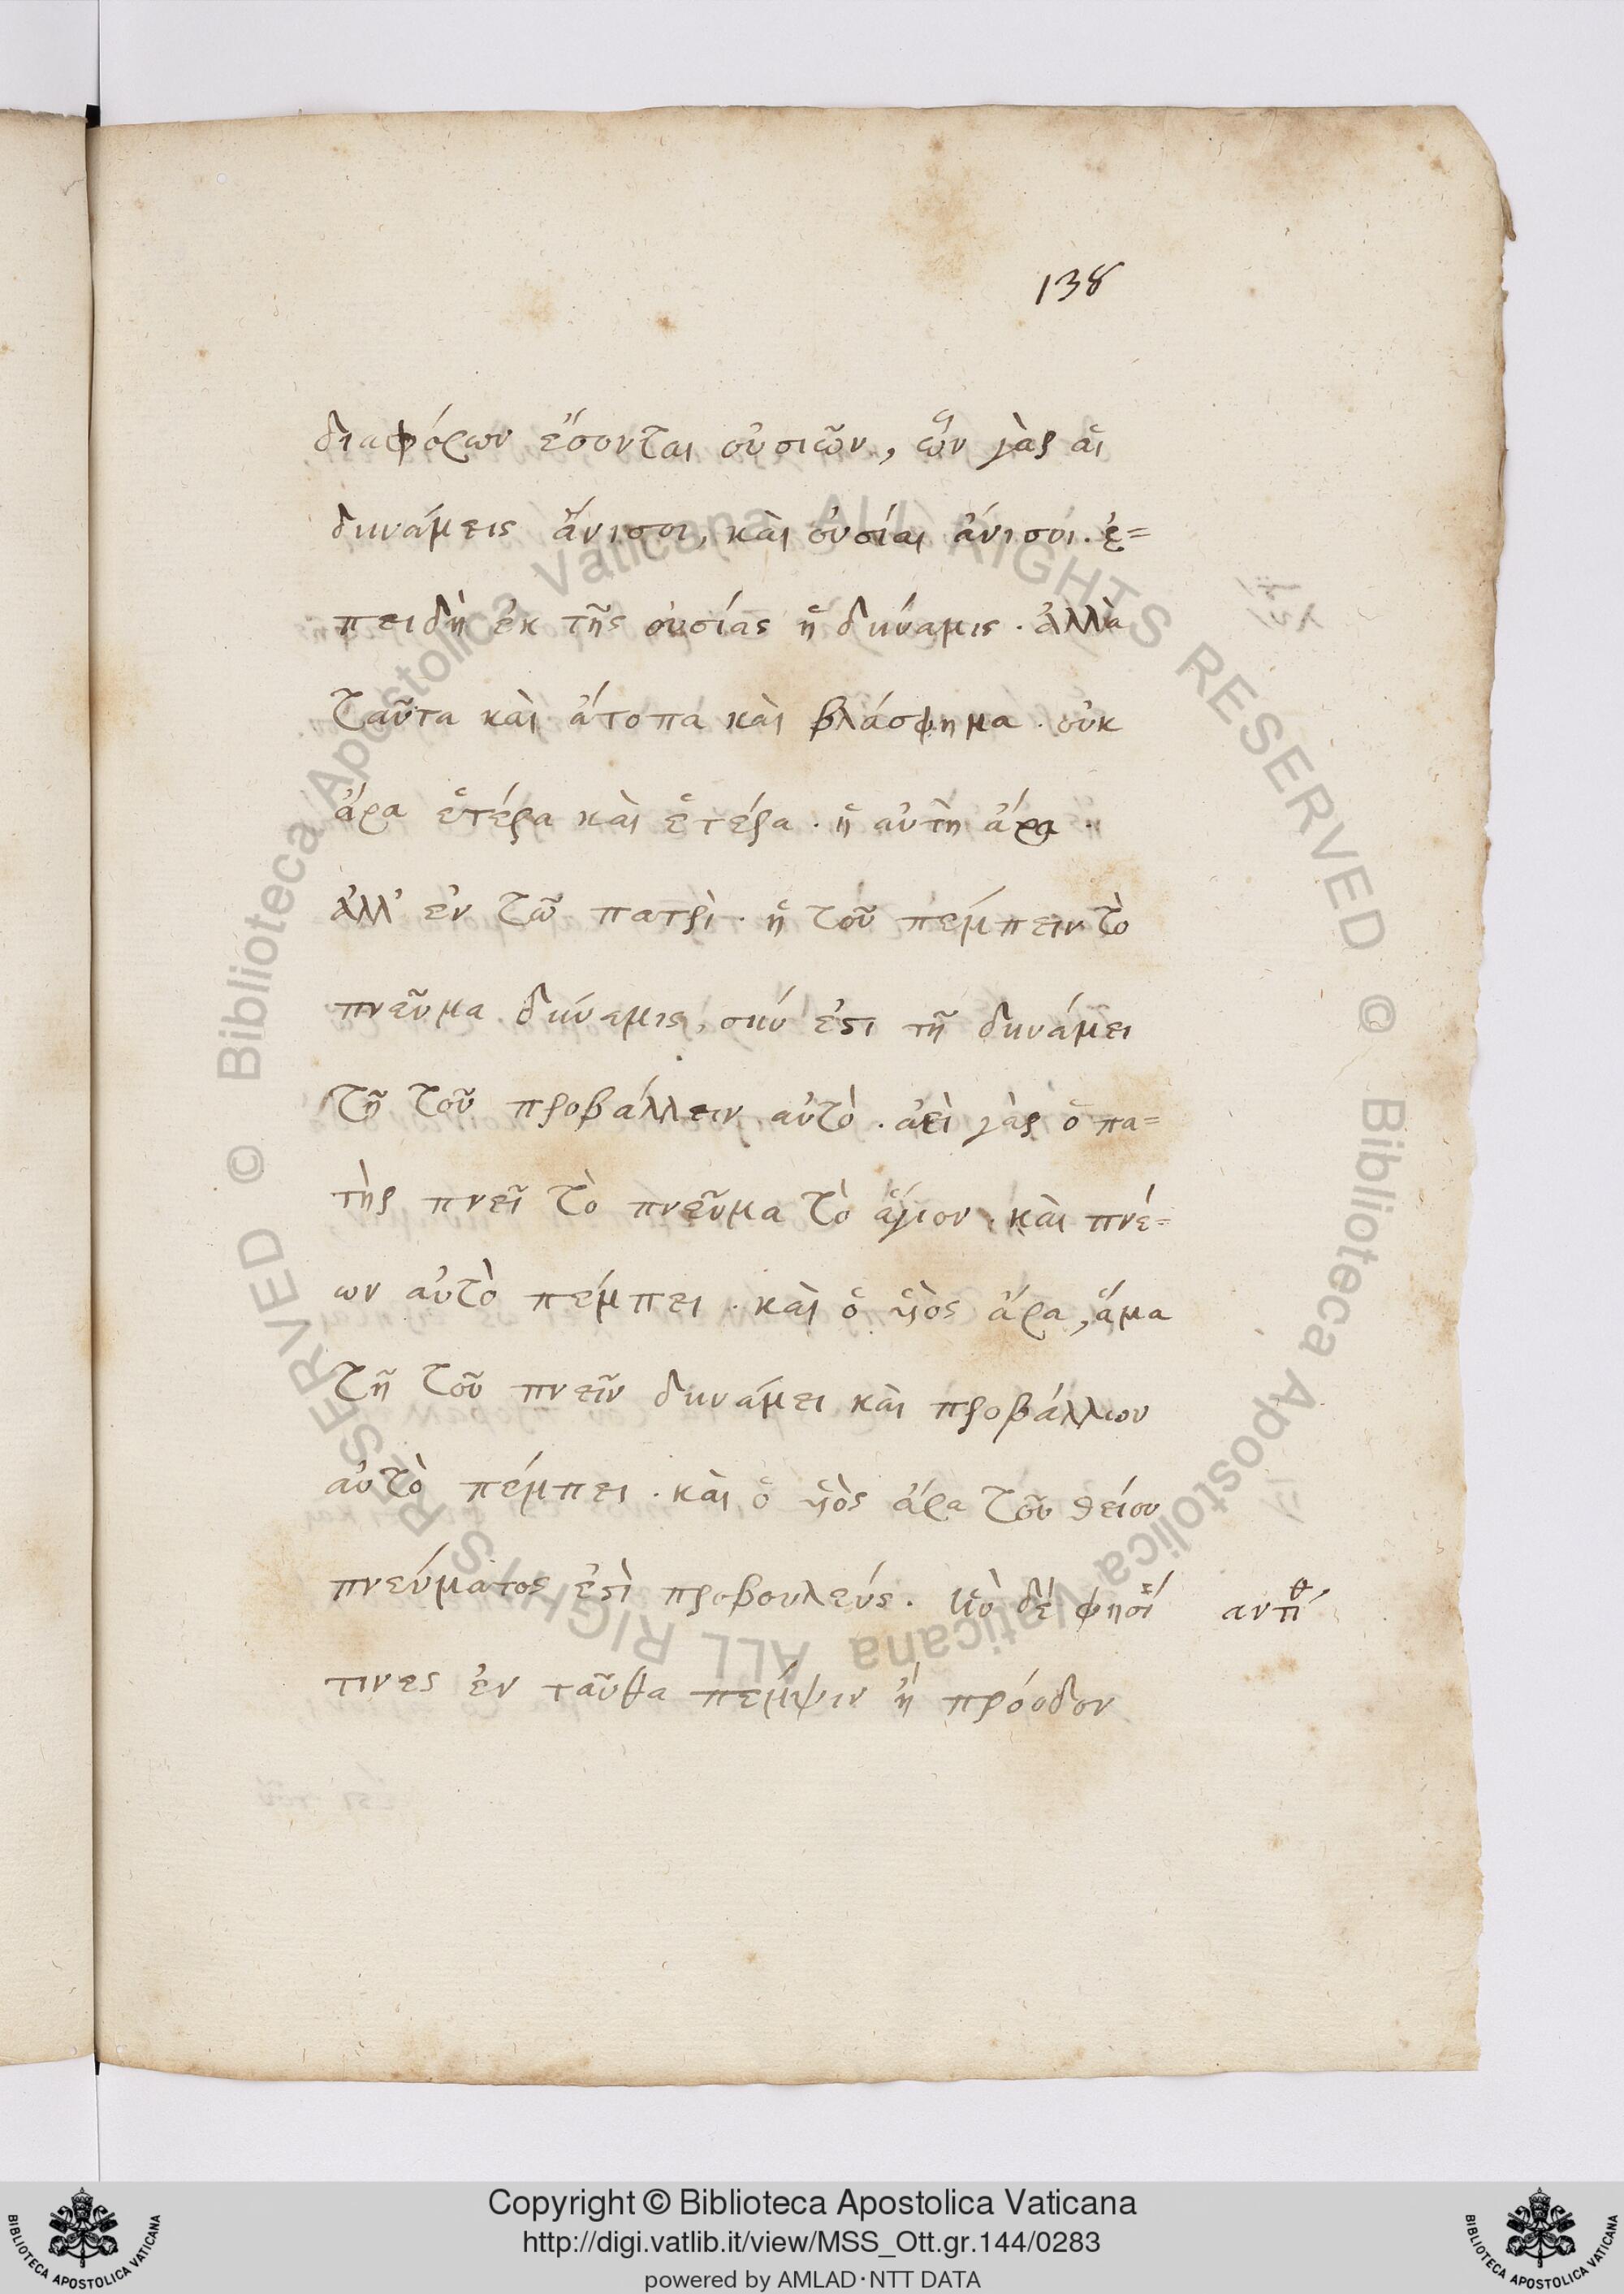 138
διαφόρων ἔσονται οὐσιῶν, ὧν γὰρ αἱ
δυνάμεις ἄνισοι, καὶ οὐσίαι ἄνισοι. ἐ=
πειδὴ ἐκ τῆς οὐσίας ἡ δύναμις. ἀλλὰ
ταῦτα καὶ ἄτοπα καὶ βλάσφημα. οὐκ
ἄρα ἑτέρα καὶ ἑτέρα. ἡ αὐτὴ ἄρα.
ἀλλ' ἐν τῶ πατρὶ. ἡ τοῦ πέμπειν τὸ
πνεῦμα δύναμις, σύν ἐστι τῆ δυνάμει
τῆ τοῦ προβάλλειν αὐτὸ. ἀεὶ γὰρ ὁ πα=
τὴρ πνεῖ τὸ πνεῦμα τὸ ἅγιον. καὶ πνέ=
ων αὐτὸ πέμπει. καὶ ὁ ὑιὸς ἄρα, ἅμα
τῆ τοῦ πνεῖν δυνάμει καὶ προβάλλων
αὐτὸ πέμπει. καὶ ὁ ὑιὸς ἄρα τοῦ θείου
πνεύματος ἐστὶ προβουλεύς. δέ φησί
τινες ἐν ταῦθα πέμψιν ἢ πρόοδον
Copyright © Biblioteca Apostolica Vaticana
http://digi.vatlib.it/view/MSS_Ott.gr.144/0283
powered by AMLAD·NTT DATA
BIBLIOTECA APOSTOLICA VATICANA
BIBLIOTECA APOSTOLICA VATICANA
© Biblioteca Apostolica Vaticana ALL RIGHTS RESERVED
© Biblioteca Apostolica Vaticana ALL RIGHTS RESERVED